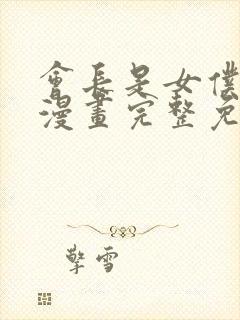 會長是女僕
漫畫完整免
擎雪